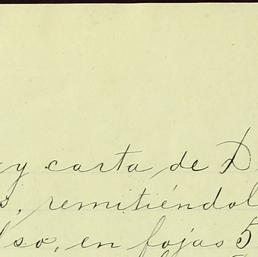 y carta de D
s, remitiéndol
lso, en fojas 5